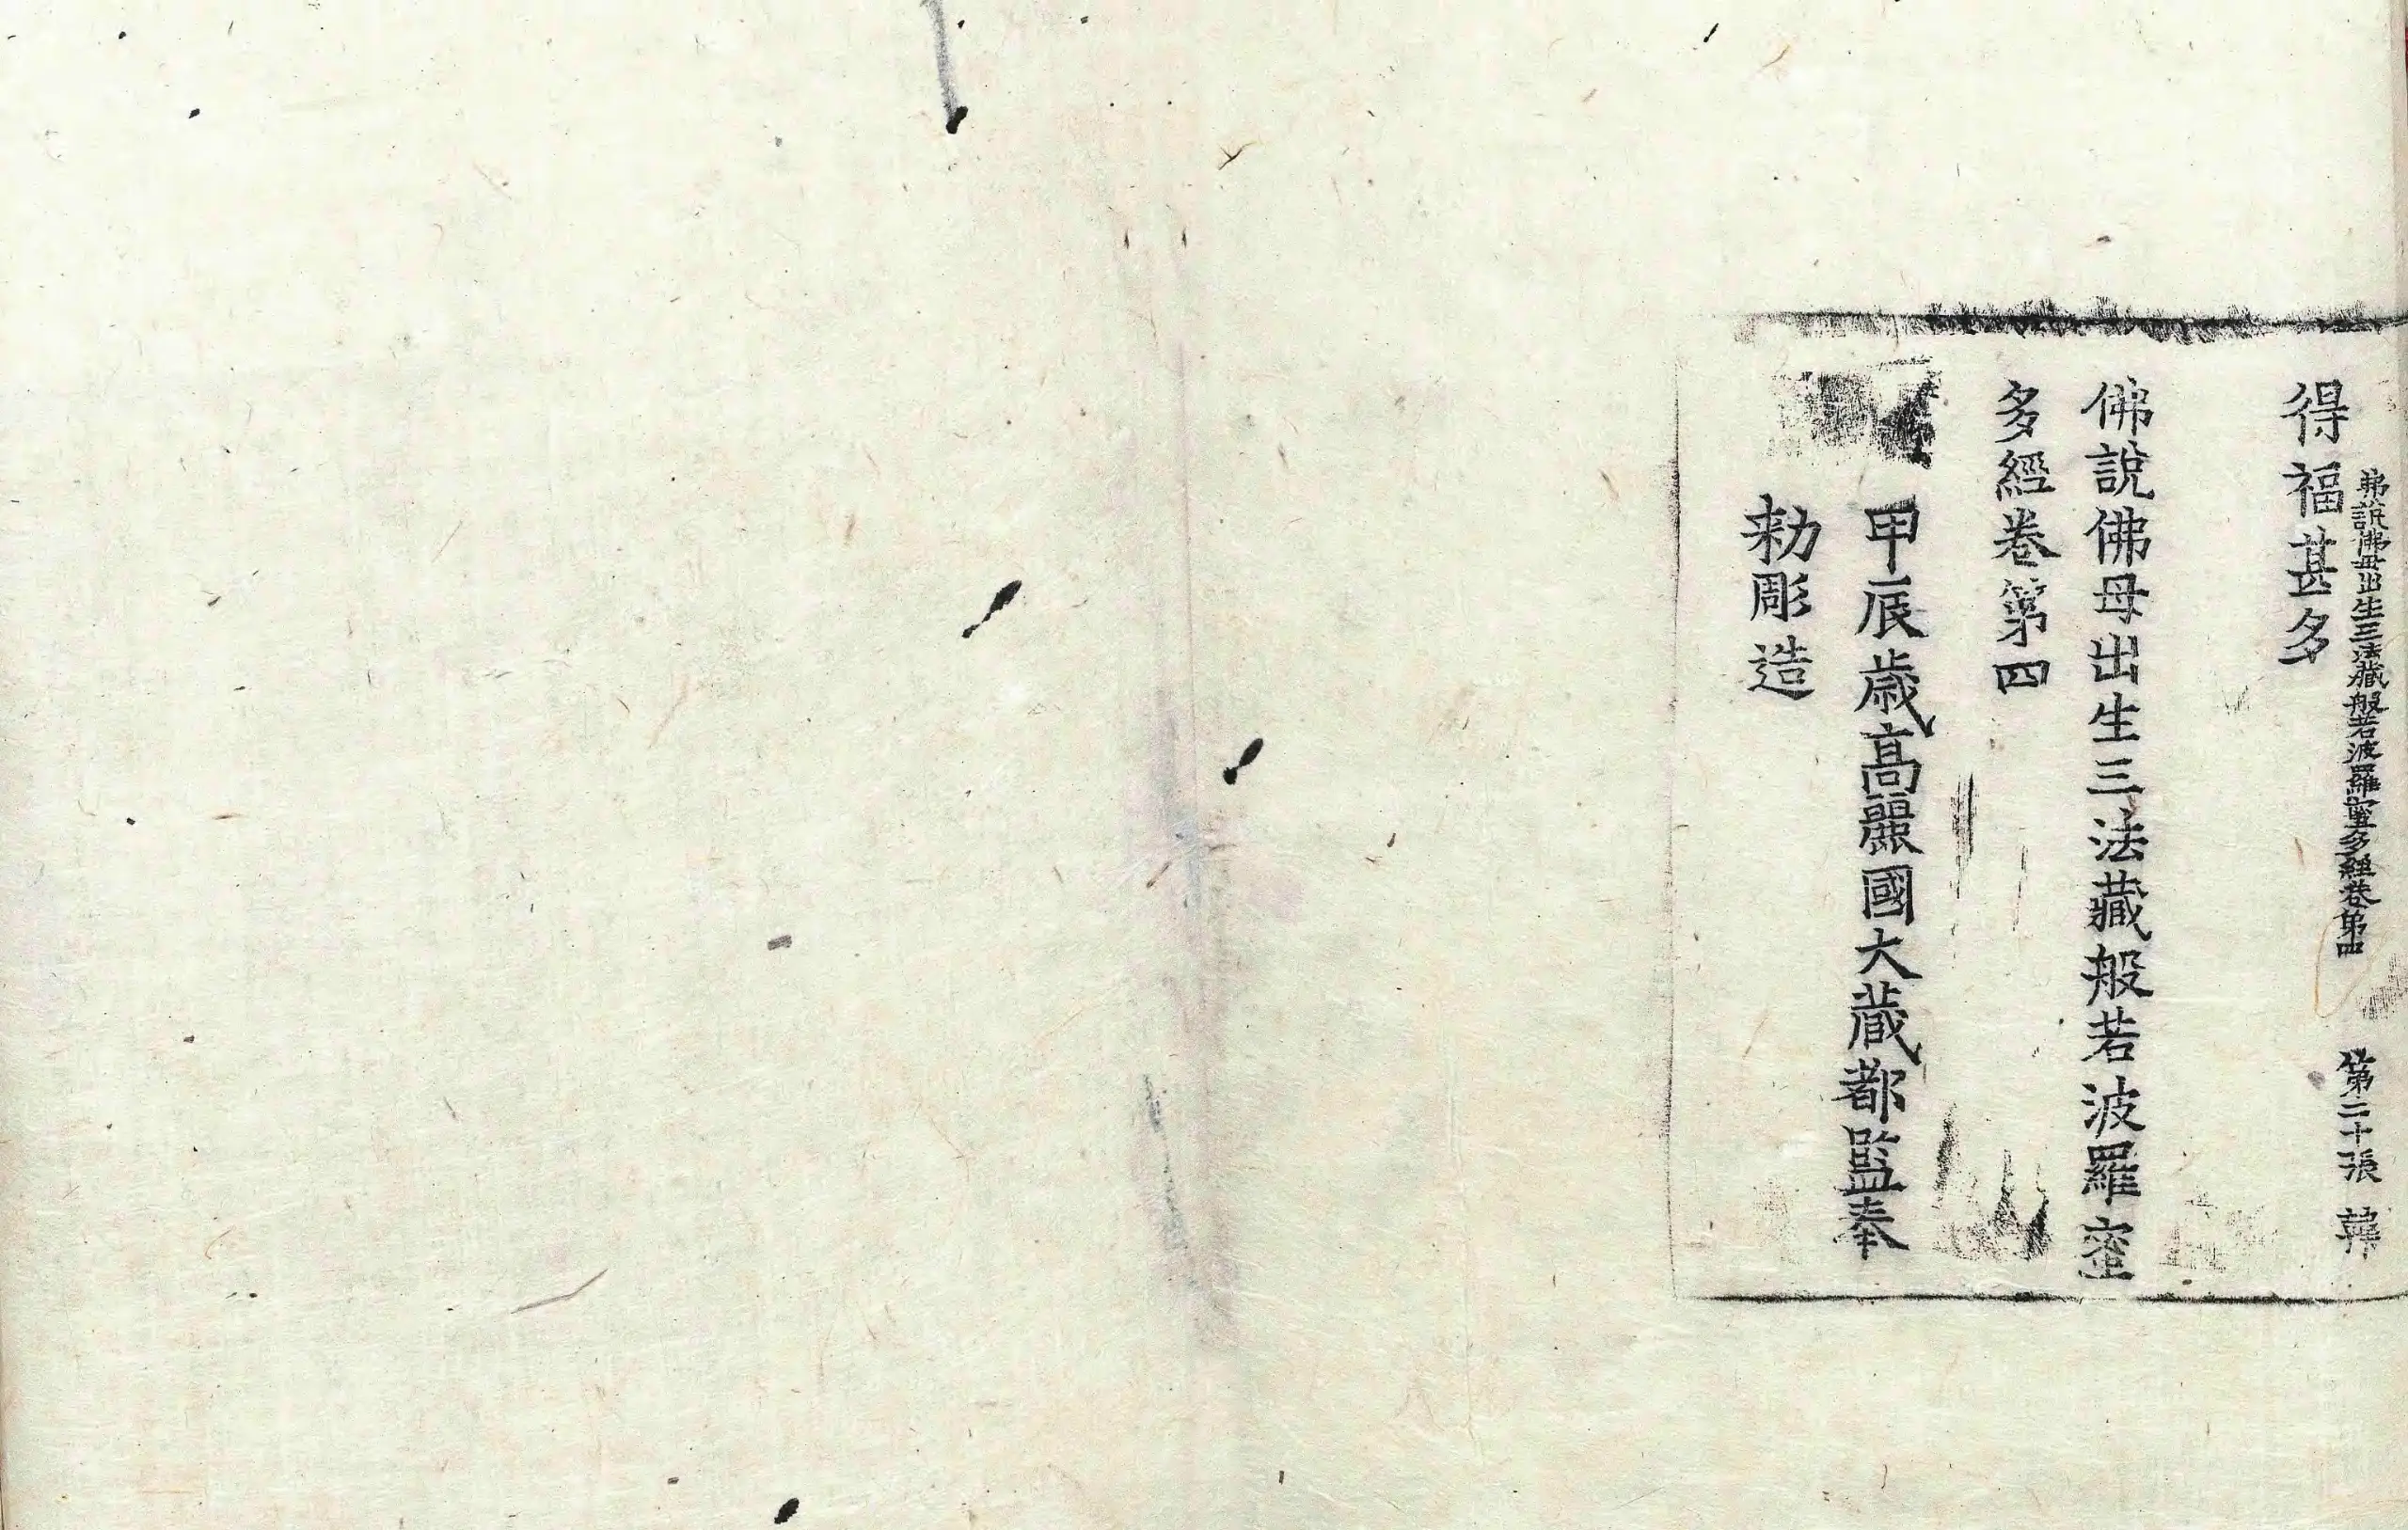 佛說佛母出生三法藏般若波羅蜜多經卷第四　第二十張　韓
得福甚多
佛說佛母出生三法藏般若波羅蜜
多經卷第四
甲辰歲高麗國大藏都監奉
勑彫造